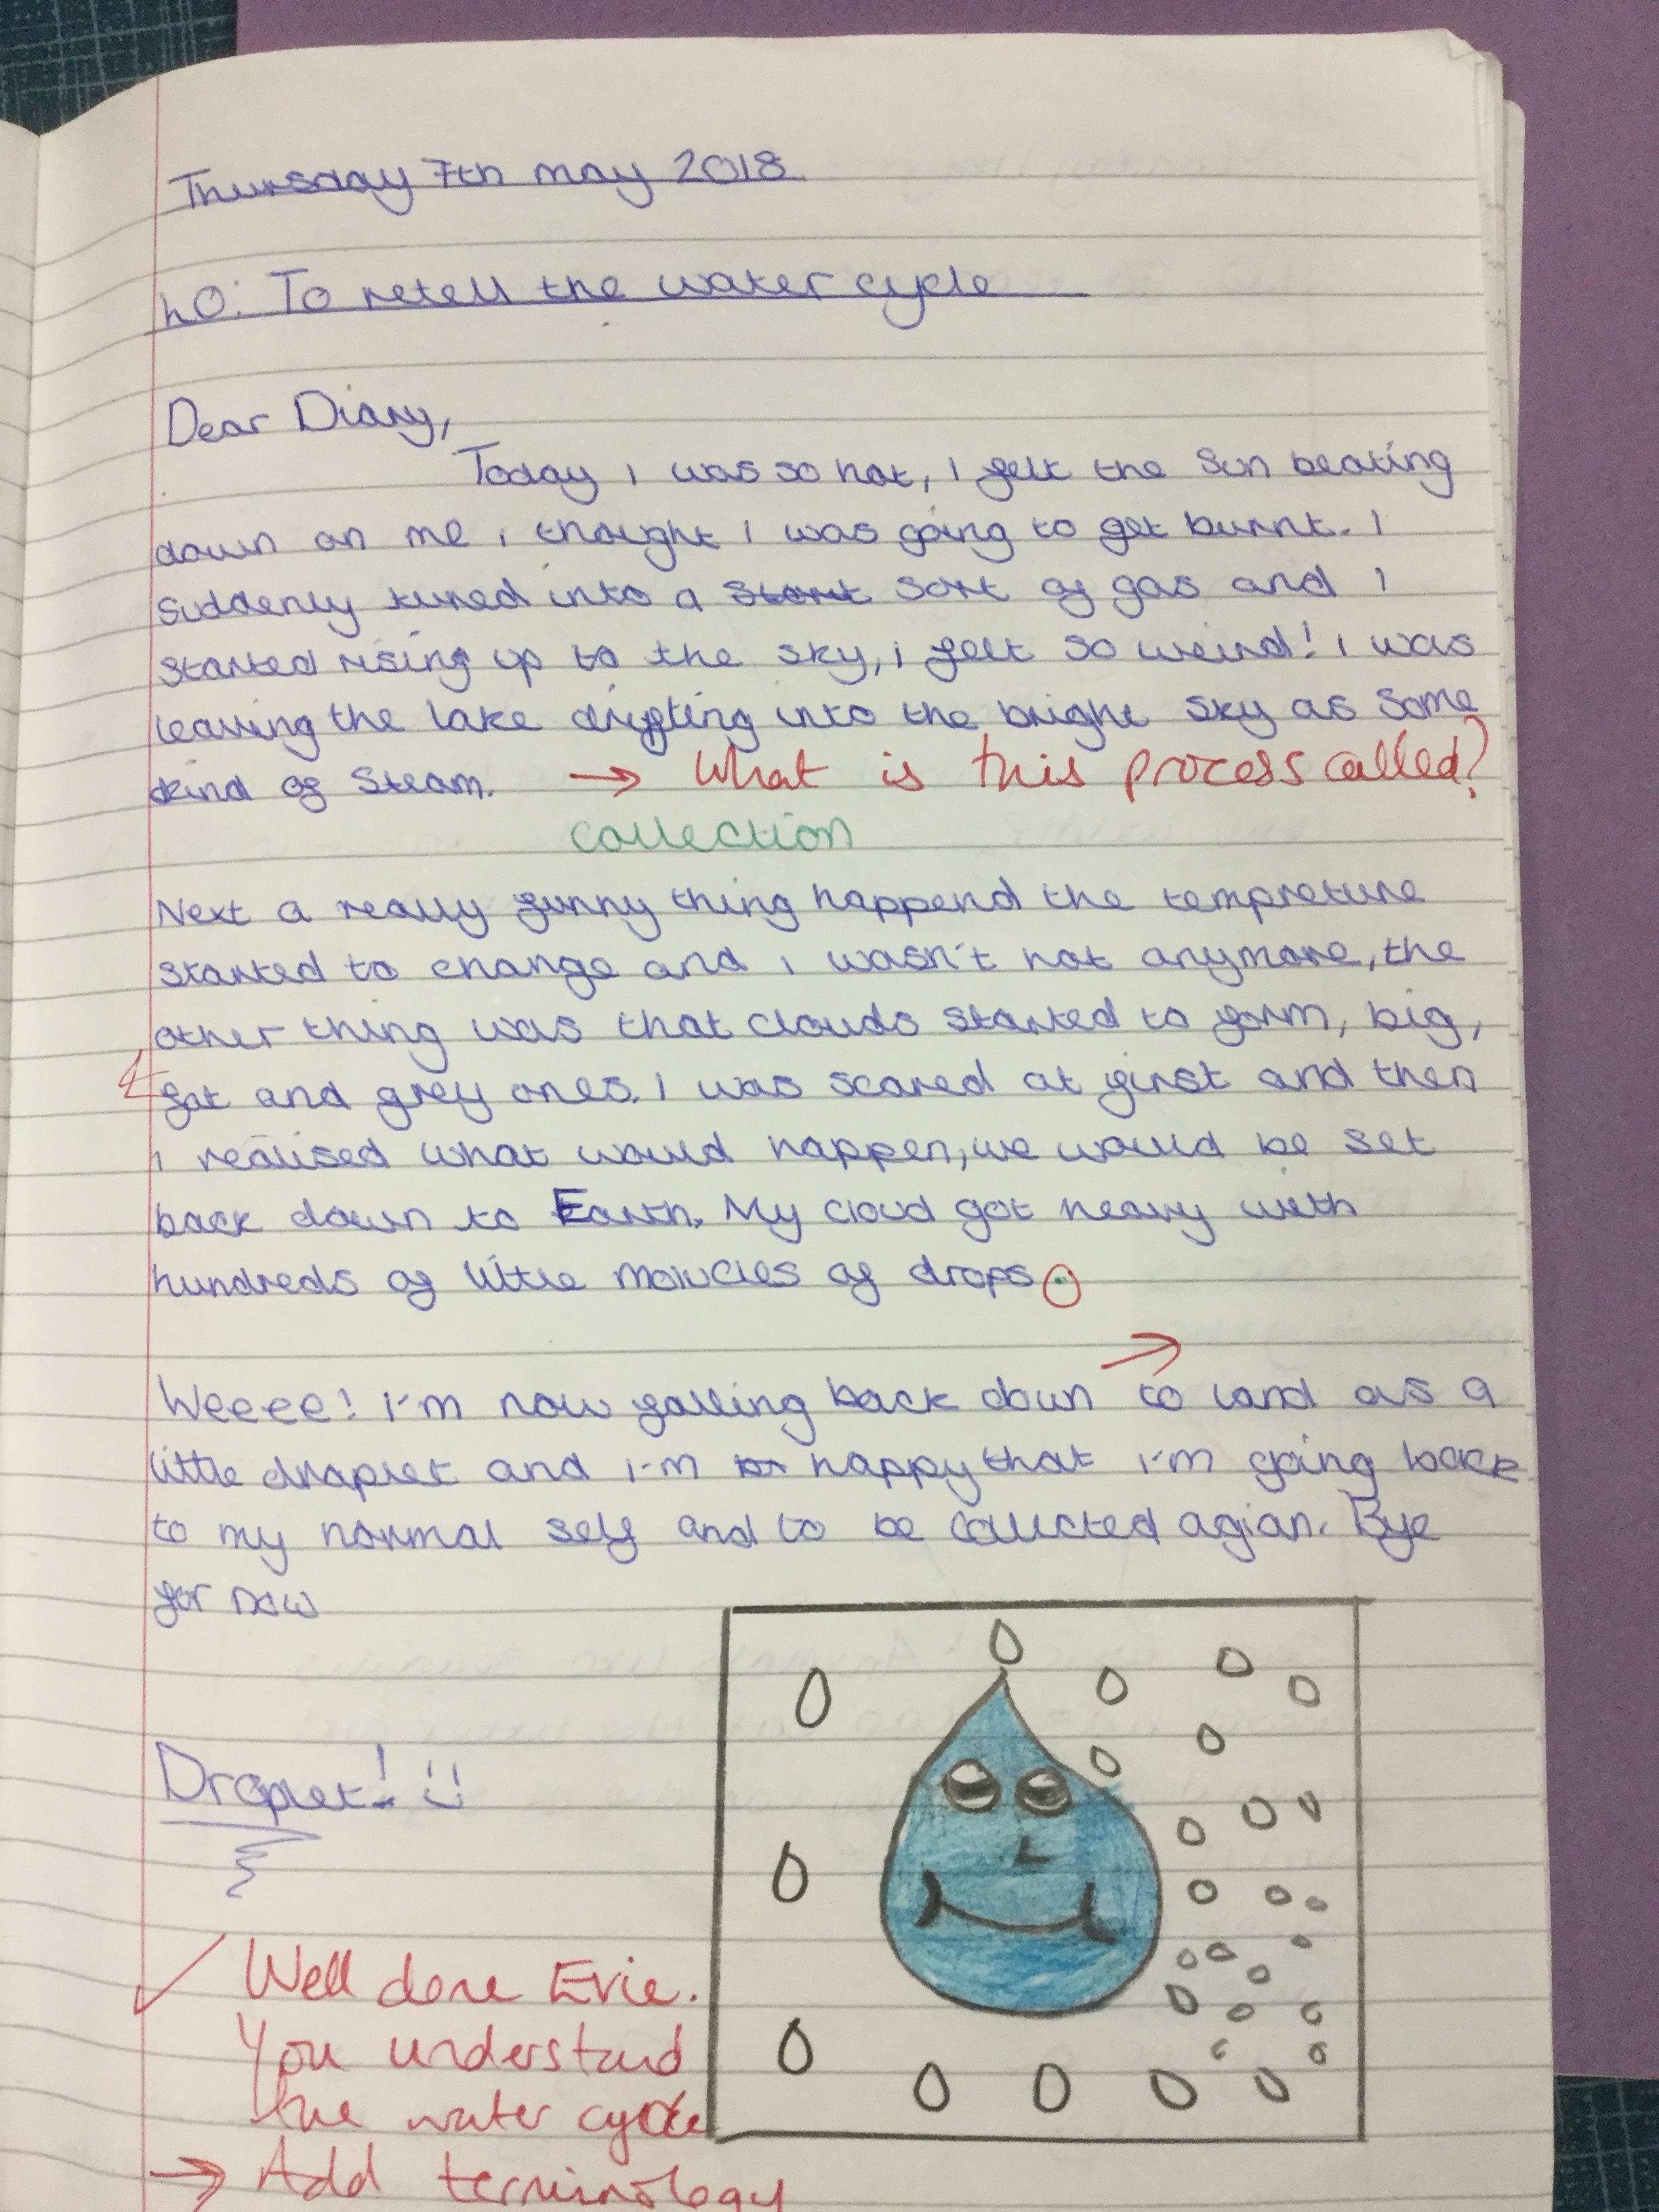 Thursday 7th may 2018
LO: To retell the water cycle
Dear Diary,
Today i was so hot, i felt the sun beating
down on me i thought I was going to get burnt. I
suddenly turned into a start sort of gas and I
started rising up to the sky, i felt so weird! i was
leaving the lake drifting into the bright sky as some
kind of steam. → What is this process called?
collection
Next a really funny thing happend the tempreture
started to change and i wasn't hot anymore, the
other thing was that clouds started to form, big,
fat and grey ones. I was scared at first and then
i realised what would happen, we would be set
back down to Earth. My cloud got heavy with
hundreds of little molucles of drops.
Weeee! I'm now falling back down to land as a
little droplet and i'm happy that i'm going back
to my normal self and to be collected agian. Bye
for now
Droplet! :)
Well done Evie.
You understand
the water cycle
→ Add terminology